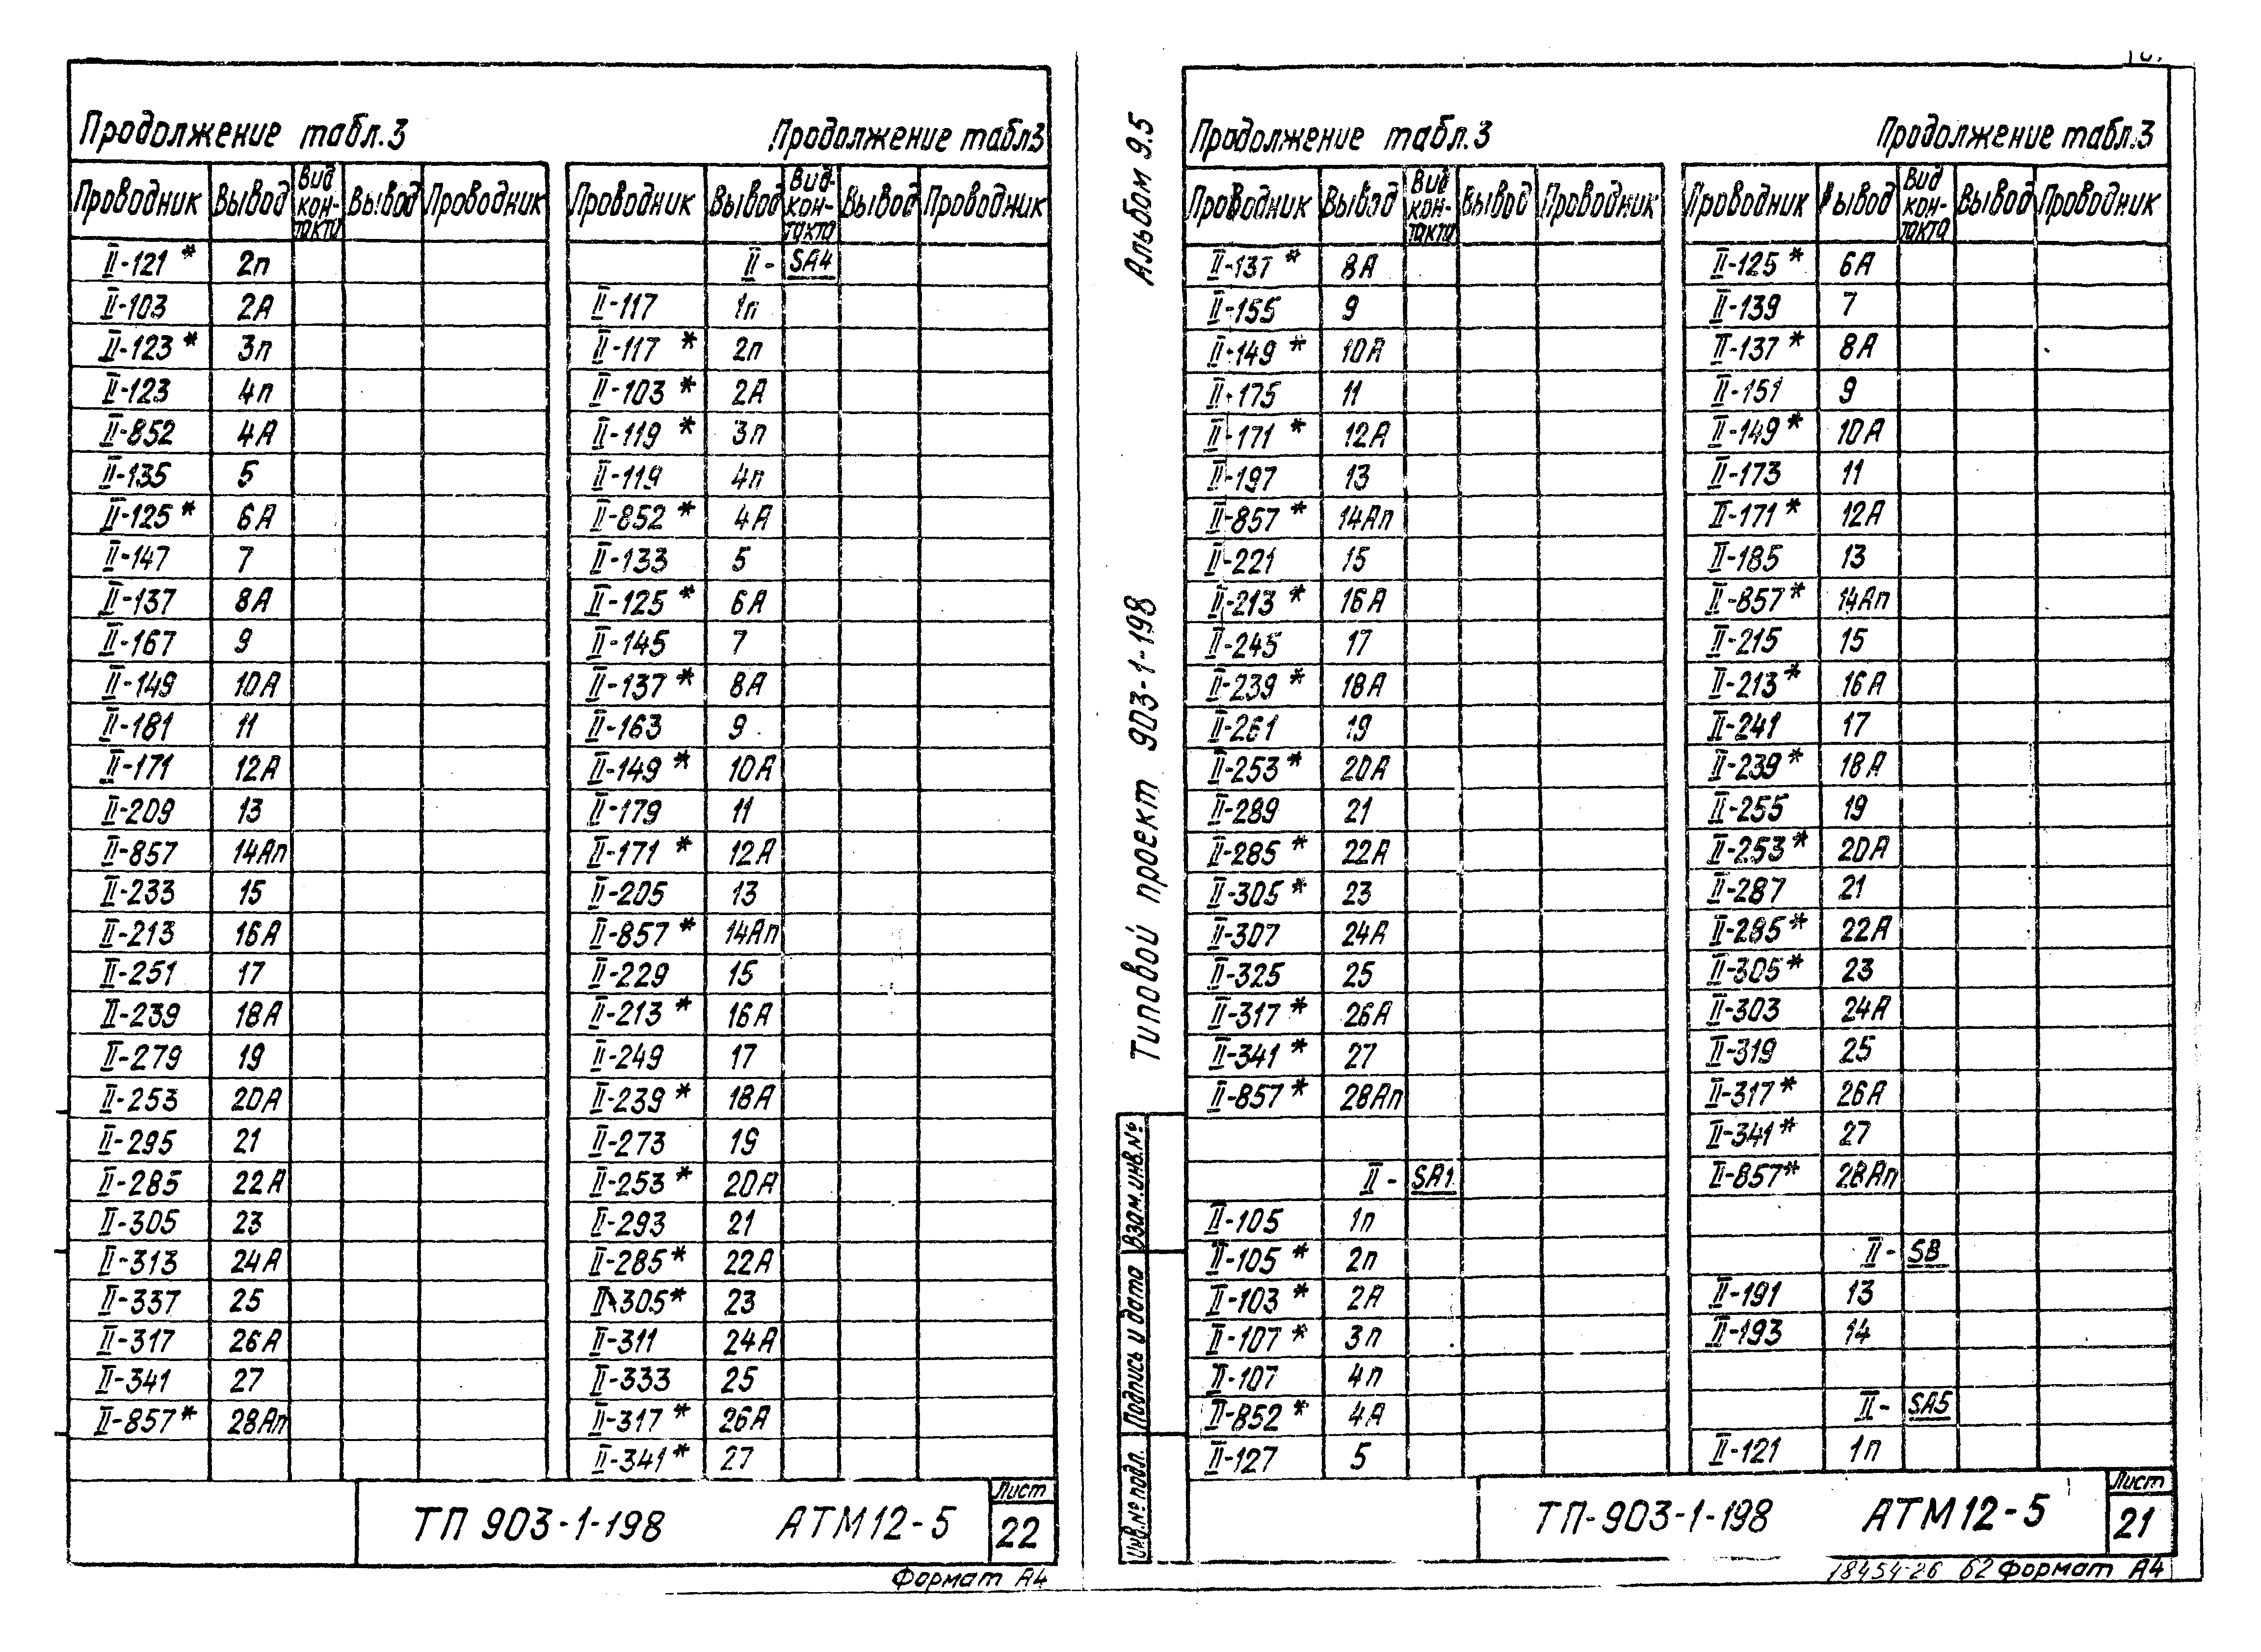 Продолжение табл.3
Проводник Вывод Вид кон- такта Вывод Проводник
II-121 * 2п
II-103 2А
II-123 * 3п
II-123 4п
II-852 4А
II-135 5
II-125 * 6А
II-147 7
II-137 8А
II-167 9
II-149 10А
II-181 11
II-171 12А
II-209 13
II-857 14Ап
II-233 15
II-213 16А
II-251 17
II-239 18А
II-279 19
II-253 20А
II-295 21
II-285 22А
II-305 23
II-313 24А
II-337 25
II-317 26А
II-341 27
II-857 * 28Ап
Продолжение табл3
Проводник Вывод Вид- кон- такта Вывод Проводник
II - SA4
II-117 1п
II-117 * 2п
II-103 * 2А
II-119 * 3п
II-119 4п
II-852 * 4А
II-133 5
II-125 * 6А
II-145 7
II-137 * 8А
II-163 9
II-149 * 10А
II-179 11
II-171 * 12А
II-205 13
II-857 * 14Ап
II-229 15
II-213 * 16А
II-249 17
II-239 * 18А
II-273 19
II-253 * 20А
II-293 21
II-285 * 22А
II-305 * 23
II-311 24А
II-333 25
II-317 * 26А
II-341 * 27
ТП 903-1-198 АТМ12-5
Лист
22
Формат А4
Альбом 9.5
Типовой проект 903-1-198
Взам.инв.№
Подпись и дата
Инв.№ подл.
Продолжение табл.3
Проводник Вывод Вид кон- такта Вывод Проводник
II-137 * 8А
II-155 9
II-149 * 10А
II-175 11
II-171 * 12А
II-197 13
II-857 * 14Ап
II-221 15
II-213 * 16А
II-245 17
II-239 * 18А
II-261 19
II-253 * 20А
II-289 21
II-285 * 22А
II-305 * 23
II-307 24А
II-325 25
II-317 * 26А
II-341 * 27
II-857 * 28Ап
II - SA1
II-105 1п
II-105 * 2п
II-103 * 2А
II-107 * 3п
II-107 4п
II-852 * 4А
II-127 5
Продолжение табл.3
Проводник Вывод Вид кон- такта Вывод Проводник
II-125 * 6А
II-139 7
II-137 * 8А
II-151 9
II-149 * 10А
II-173 11
II-171 * 12А
II-185 13
II-857 * 14Ап
II-215 15
II-213 * 16А
II-241 17
II-239 * 18А
II-255 19
II-253 * 20А
II-287 21
II-285 * 22А
II-305 * 23
II-303 24А
II-319 25
II-317 * 26А
II-341 * 27
II-857 * 28Ап
II - SB
II-191 13
II-193 14
II - SA5
II-121 1п
ТП-903-1-198 АТМ12-5
Лист
21
18454-26 62 Формат А4